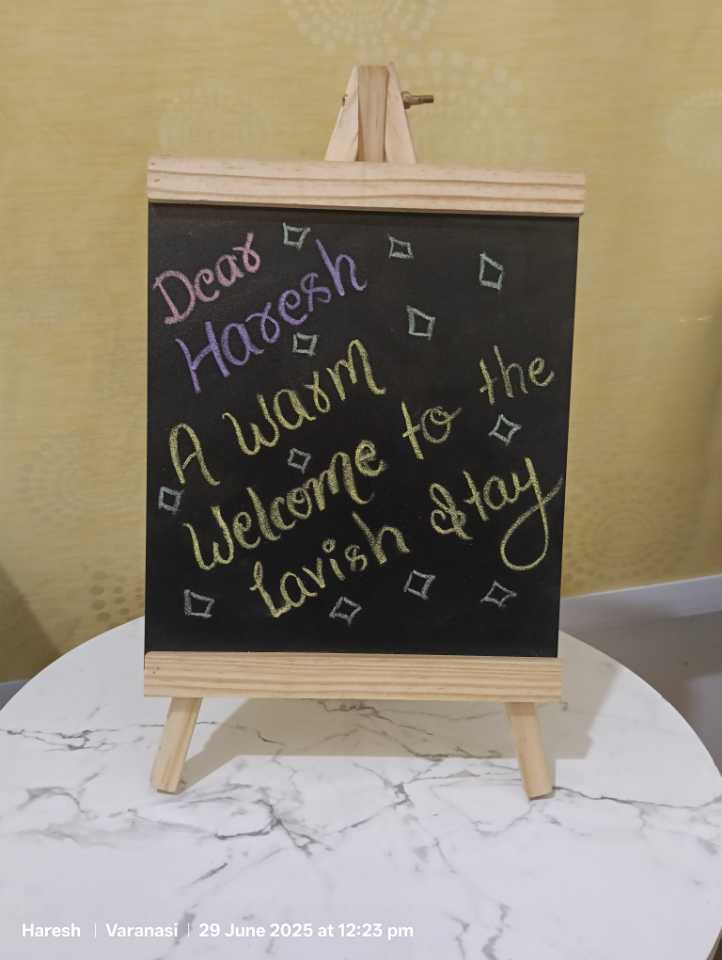 Dear
Haresh
A Warm
Welcome to the
Lavish Stay
Haresh | Varanasi | 29 June 2025 at 12:23 pm